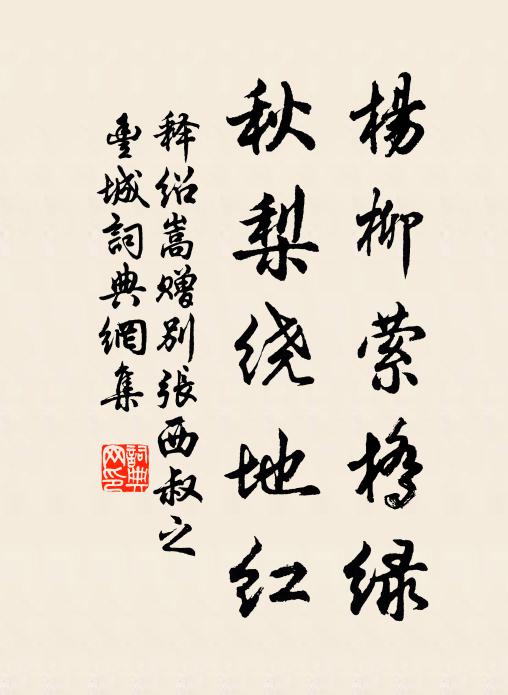 楊柳萦橋绿
秋梨绕地红
释绍嵩赠别張西叔之
豊城詞典網集
詞典网印